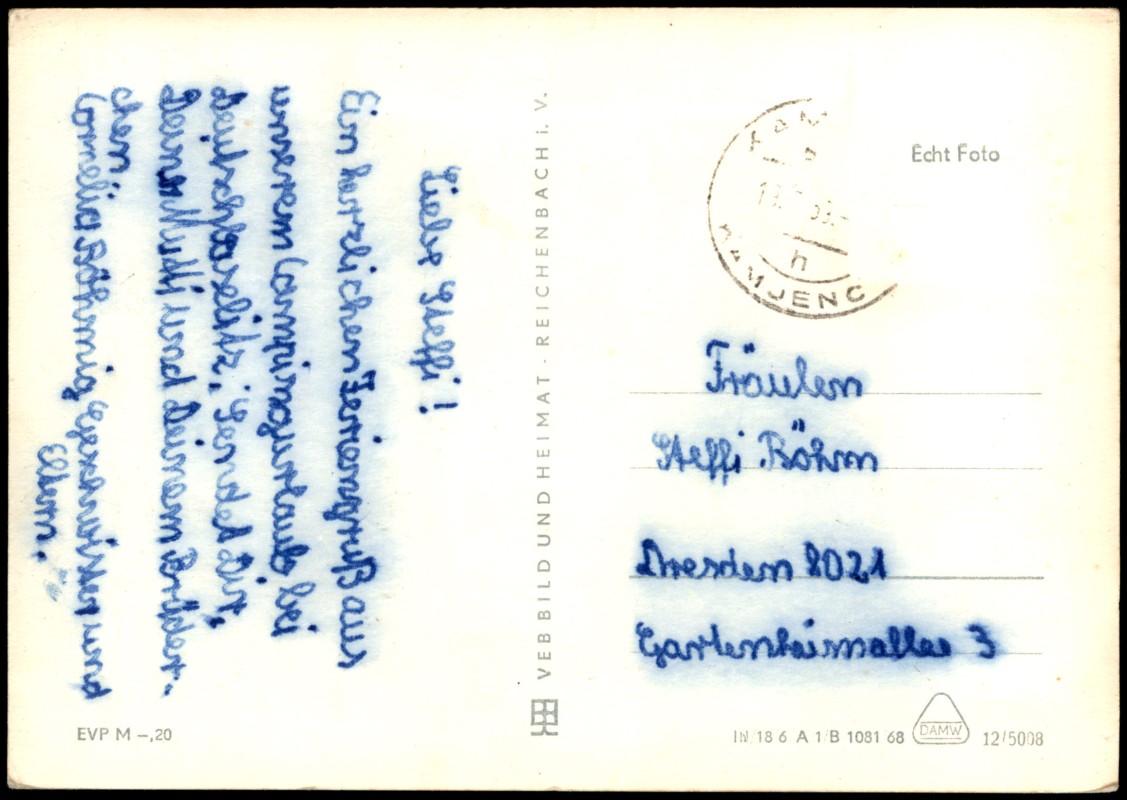 Liebe Steffi!
Ein herzlichen Feriengruß aus
unserem Campingurlaub bei
Deutschbaselitz, sendet Dir,
Deiner Mutti und Deinem Brüder-
chen
Cornelia Böhmig Geschwister und
Eltern.
VEB BILD UND HEIMAT · REICHENBACH i. V.
EVP M –,20
KAM
h
KAMJENC
Echt Foto
Fräulen
Steffi Böhm
Dresden 8021
Gartenheimallee 3
IN/18 6 A 1/B 1081 68
DAMW
12/5008